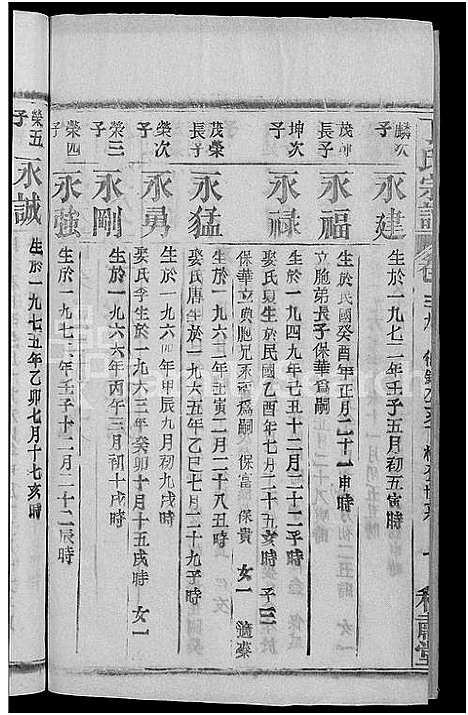 丁氏宗譜 卷 三九
麟次子 永建 生於一九七二年壬子五月初五寅時
茂坤長子 永福 生於民國癸酉年正月二十一申時
立胞弟長子保華爲嗣
坤次子 永禄 生於一九四九年己丑十二月二十二子時
娶氏夏生於民國乙酉年三月二十五亥時 子三
保華立與胞兄永福爲嗣 保富 保貴 女一 適秦
茂榮長子 永猛 生於一九六二年壬寅二月二十八丑時
娶氏唐生於一九六五年乙巳七月二十九子時
榮次子 永勇 生於一九六四年甲辰九月初九戌時
娶氏李生於一九六三年癸卯十月十五戌時 女一
榮三子 永剛 生於一九六六年丙午三月初十戌時
榮四子 永強 生於一九七二年壬子十二月二十二辰時
榮五子 永誠 生於一九七五年乙卯七月十七亥時